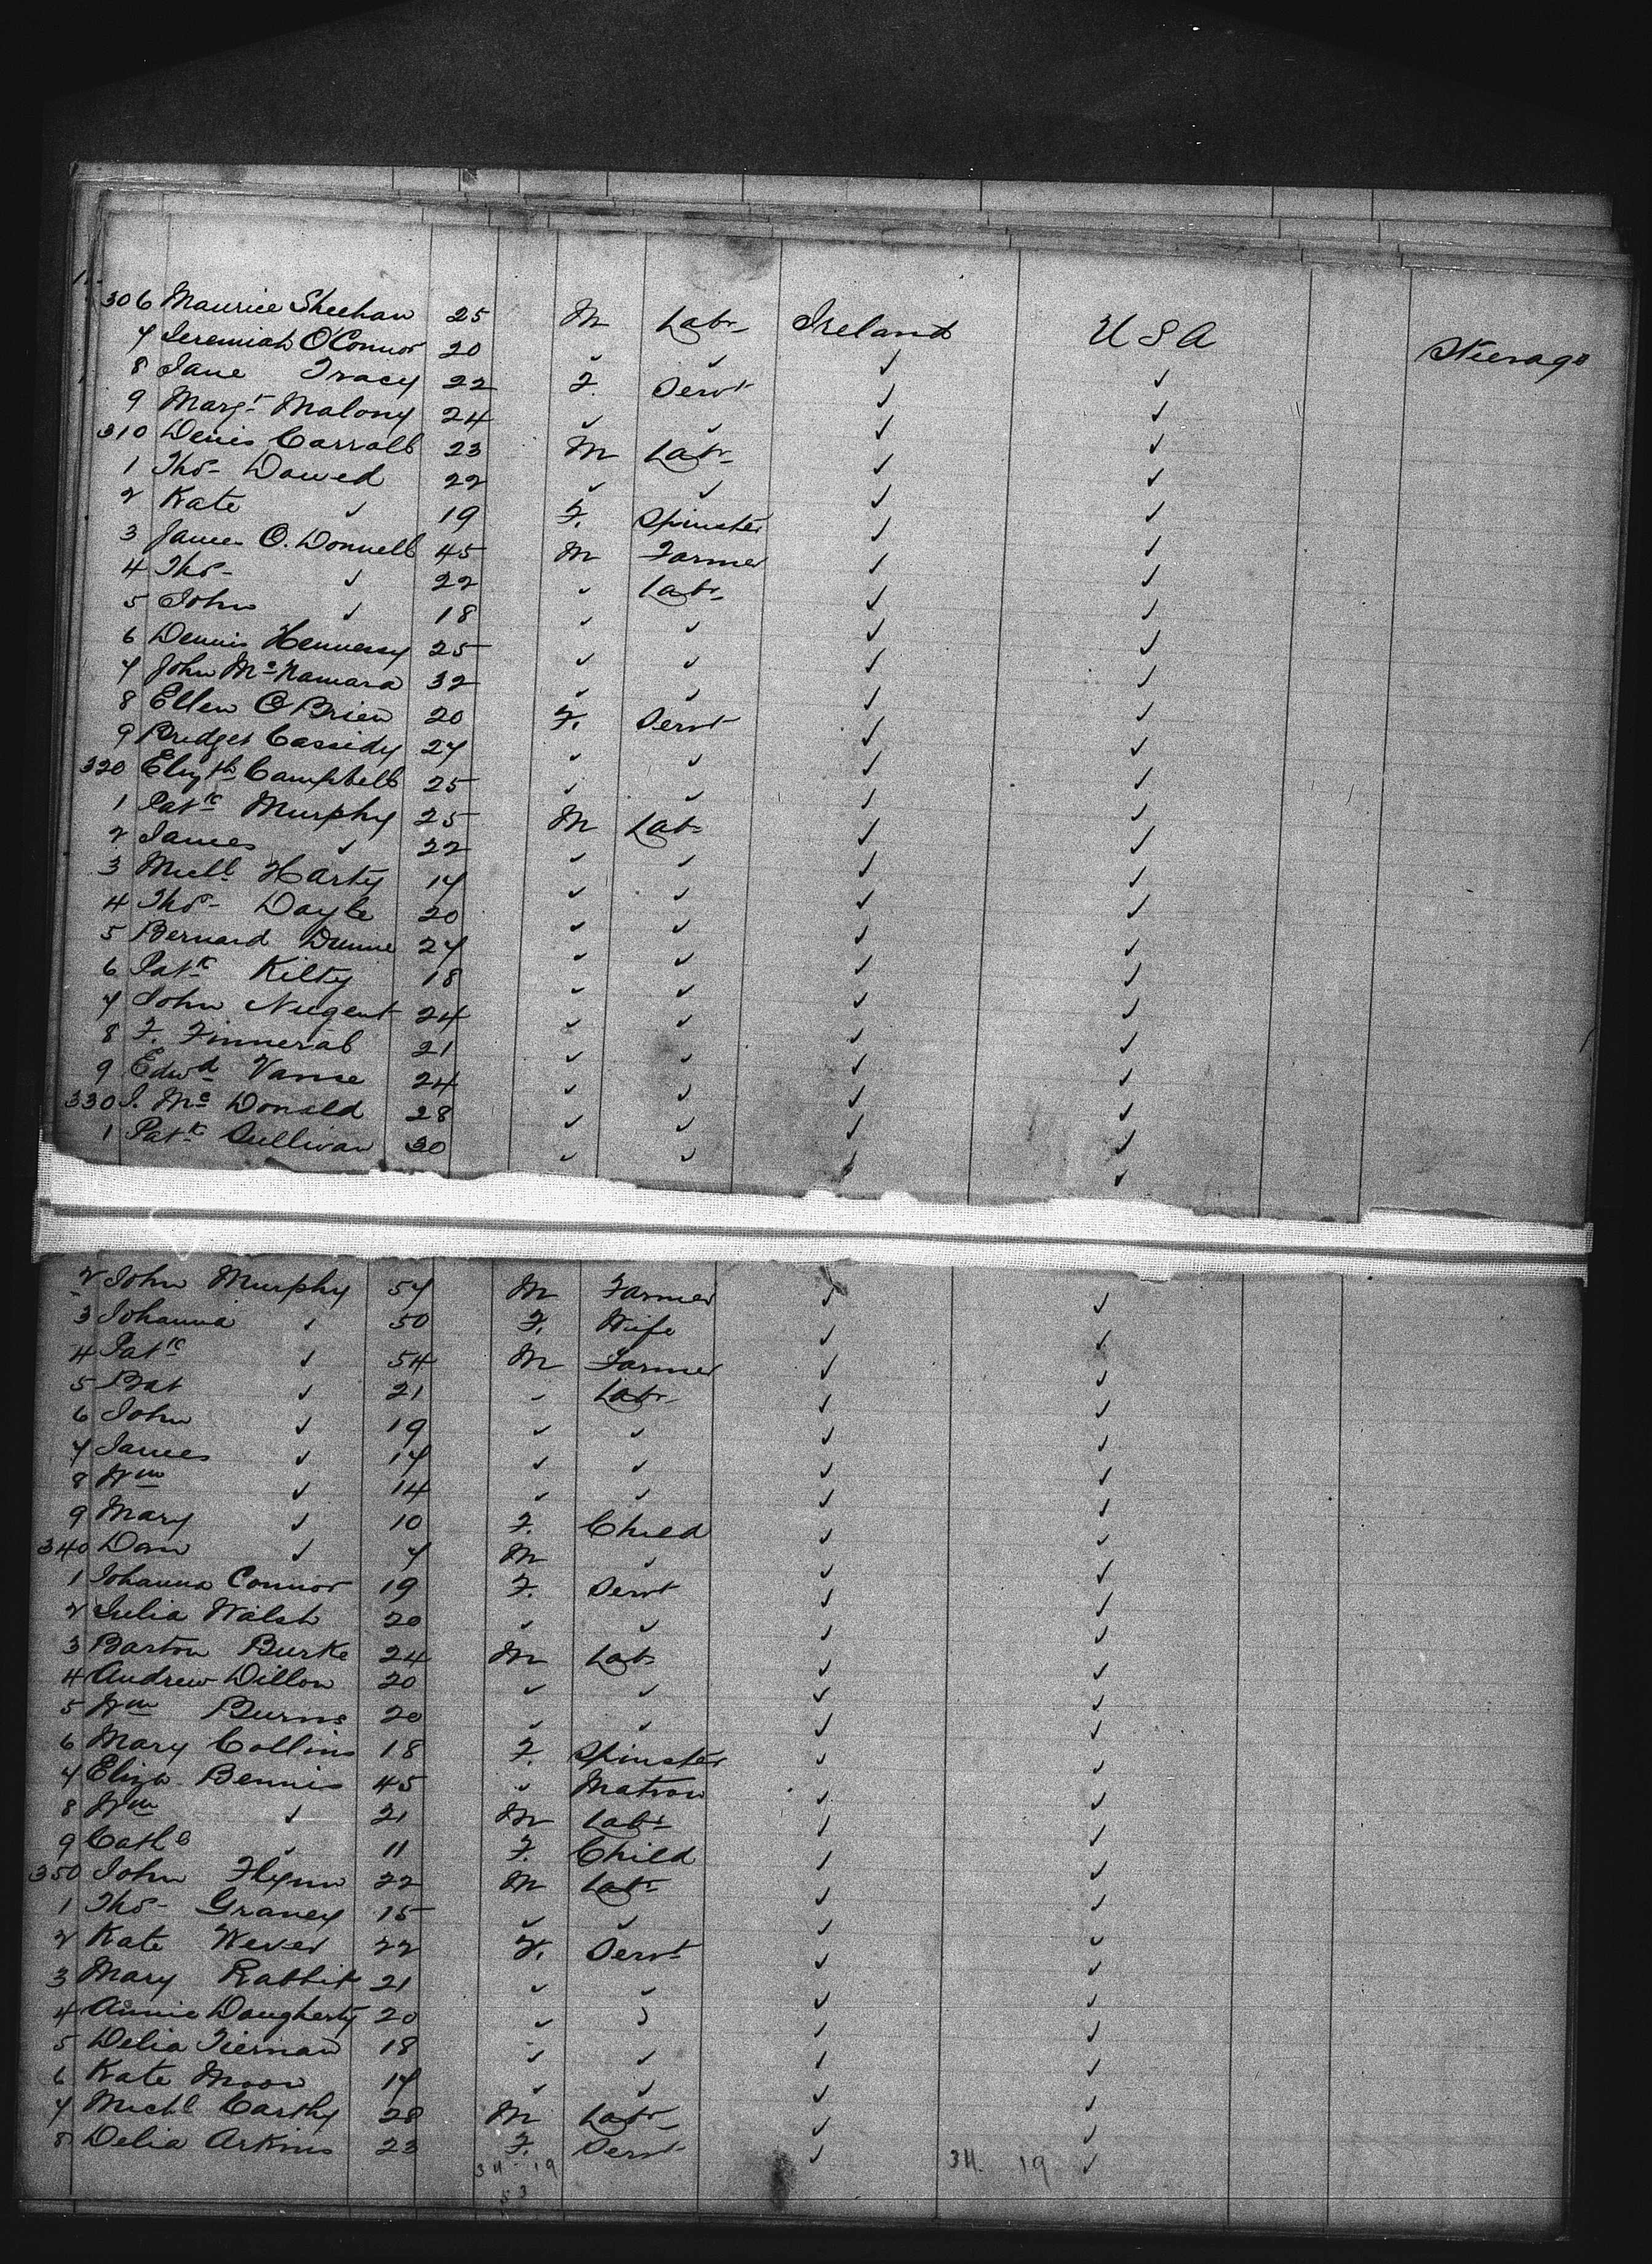 306 Maurice Sheehan 25 M Labr Ireland USA Steerage
7 Jeremiah O'Connor 20 ✓ ✓ ✓ ✓
8 Jane Tracy 22 F. Servt ✓ ✓
9 Margt Malony 24 ✓ ✓ ✓ ✓
310 Denis Carroll 23 M Labr ✓ ✓
1 Thos Dowed 22 ✓ ✓ ✓ ✓
2 Kate ✓ 19 F. Spinster ✓ ✓
3 James O.Donnell 45 M Farmer ✓ ✓
4 Thos ✓ 22 ✓ Labr ✓ ✓
5 John ✓ 18 ✓ ✓ ✓ ✓
6 Dennis Hennessy 25 ✓ ✓ ✓ ✓
7 John McNamara 32 ✓ ✓ ✓ ✓
8 Ellen O'Brien 20 F. Servt ✓ ✓
9 Bridget Cassidy 27 ✓ ✓ ✓ ✓
320 Elizth Campbell 25 ✓ ✓ ✓ ✓
1 Patk Murphy 25 M Labr ✓ ✓
2 James ✓ 22 ✓ ✓ ✓ ✓
3 Michl Harty 17 ✓ ✓ ✓ ✓
4 Thos Doyle 20 ✓ ✓ ✓ ✓
5 Bernard Dunne 27 ✓ ✓ ✓ ✓
6 Patk Kilty 18 ✓ ✓ ✓ ✓
7 John Nugent 24 ✓ ✓ ✓ ✓
8 F. Finneral 21 ✓ ✓ ✓ ✓
9 Edwd Vanse 24 ✓ ✓ ✓ ✓
330 J. McDonald 28 ✓ ✓ ✓ ✓
1 Patk Sullivan 30 ✓ ✓ ✓ ✓
2 John Murphy 57 M Farmer ✓ ✓
3 Johanna ✓ 50 F. Wife ✓ ✓
4 Patk ✓ 54 M Farmer ✓ ✓
5 Bat ✓ 21 ✓ Labr ✓ ✓
6 John ✓ 19 ✓ ✓ ✓ ✓
7 James ✓ 17 ✓ ✓ ✓ ✓
8 Wm ✓ 14 ✓ ✓ ✓ ✓
9 Mary ✓ 10 F. Child ✓ ✓
340 Dan ✓ 7 M ✓ ✓ ✓
1 Johanna Connor 19 F. Servt ✓ ✓
2 Julia Walsh 20 ✓ ✓ ✓ ✓
3 Barton Burke 24 M Labr ✓ ✓
4 Andrew Dillon 20 ✓ ✓ ✓ ✓
5 Wm Burns 20 ✓ ✓ ✓ ✓
6 Mary Collins 18 F. Spinster ✓ ✓
7 Eliza Bennis 45 ✓ Matron ✓ ✓
8 Wm ✓ 21 M Labr ✓ ✓
9 Cathe ✓ 11 F. Child ✓ ✓
350 John Flynn 22 M Labr ✓ ✓
1 Thos Graney 15 ✓ ✓ ✓ ✓
2 Kate Wever 22 F. Servt ✓ ✓
3 Mary Rabbit 21 ✓ ✓ ✓ ✓
4 Annie Daugherty 20 ✓ ✓ ✓ ✓
5 Delia Tiernan 18 ✓ ✓ ✓ ✓
6 Kate Moon 17 ✓ ✓ ✓ ✓
7 Michl Carthy 28 M Labr ✓ ✓
8 Delia Arkins 23 F. Servt ✓ ✓
34 19 34 19
53